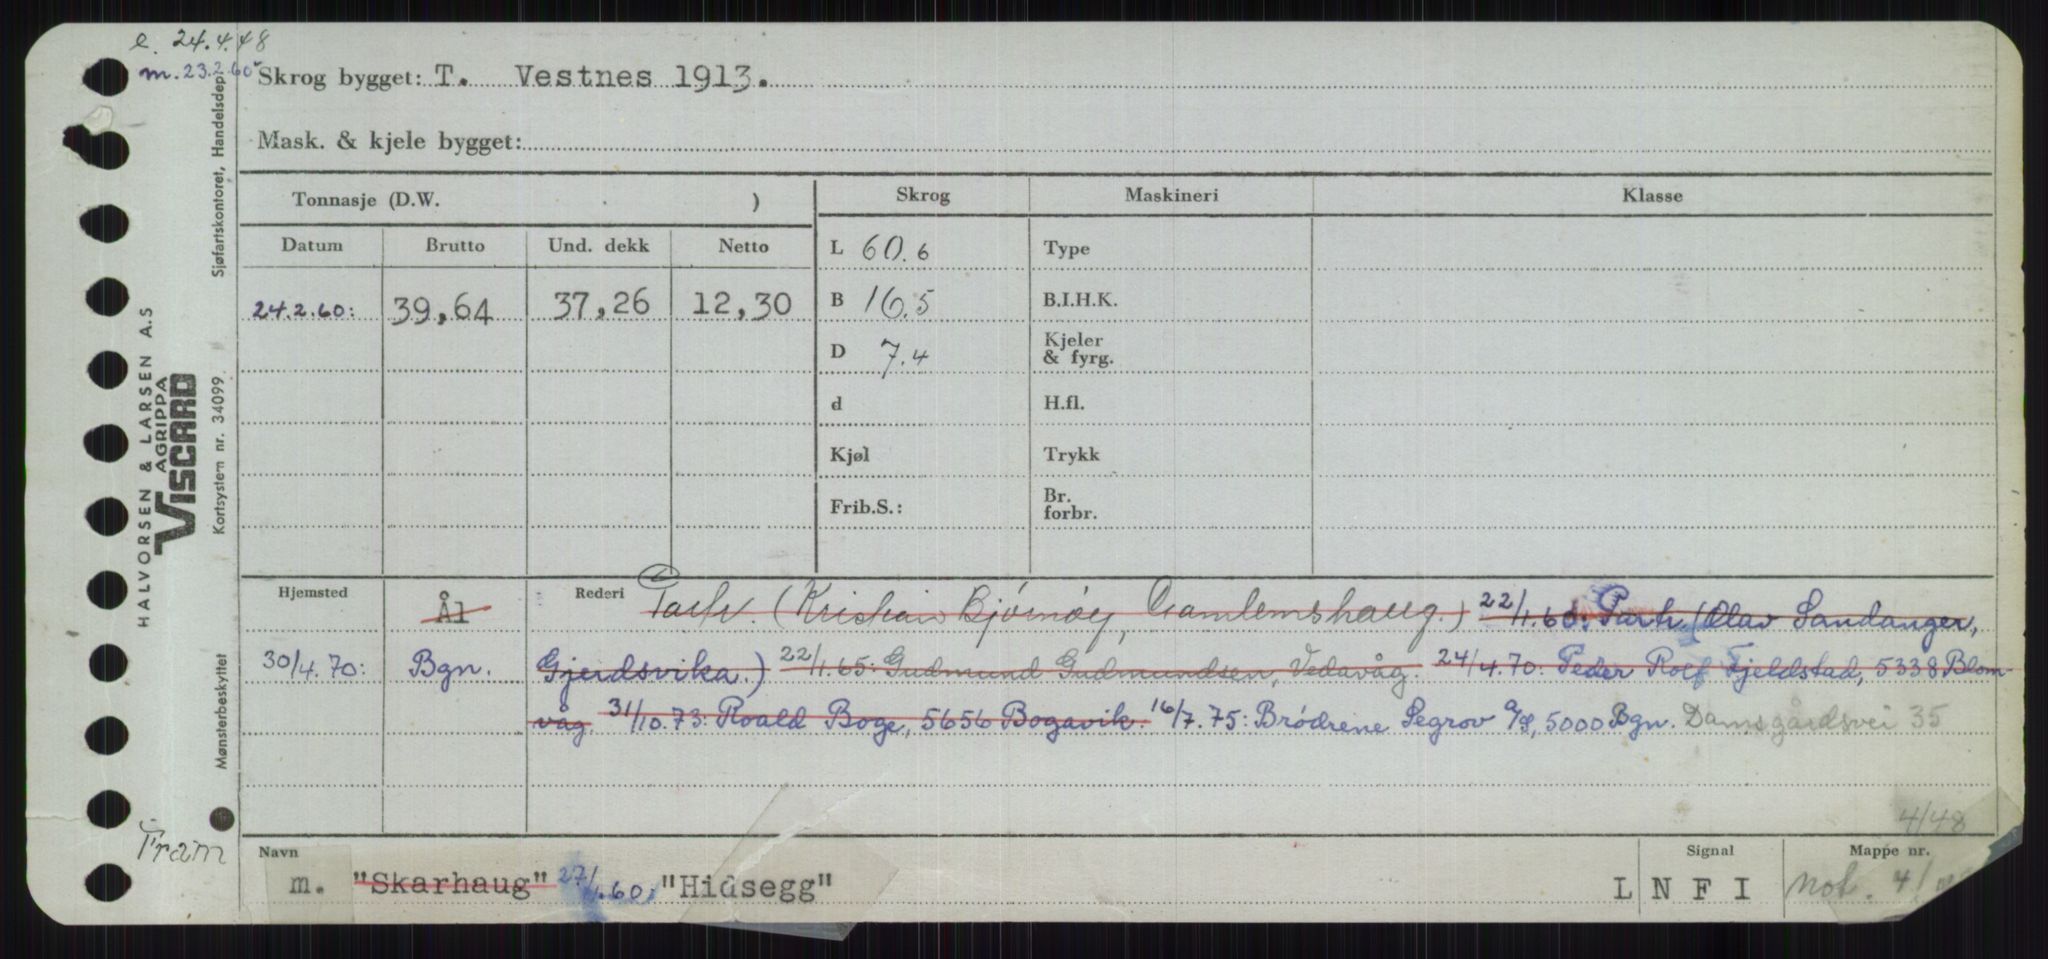 e. 24.4.48
m. 23.2.60
Skrog bygget: T. Vestnes 1913.
Mask. & kjele bygget:
Tonnasje (D.W. )
Skrog
Maskineri
Klasse
Datum
Brutto
Und. dekk
Netto
L 60.6
Type
24.2.60: 39,64 37,26 12,30
B 16.5
B.I.H.K.
D 7.4
Kjeler
& fyrg.
d
H.fl.
Kjøl
Trykk
Frib.S.:
Br.
forbr.
Hjemsted
Ål
Rederi
Partr. (Kristian Bjørnøy, Gamlemshaug.) 22/1.60: Partr. (Olav Sandanger,
30/4.70: Bgn. Gjerdsvika.) 22/1.65: Gudmund Gudmundsen, Vedavåg. 24/4.70: Peder Rolf Fjeldstad, 5338 Blom-
våg. 31/10.73: Roald Boge, 5656 Bogavik. 16/7.75: Brödrene Segrov A/S, 5000 Bgn. Damsgårdsvei 35
4/48
Fram
Navn
Signal
Mappe nr.
m. "Skarhaug" 27/1.60: "Hidsegg"
L N F I
not. 4/
HALVORSEN & LARSEN A.S
AGRIPPA
VISCARD
Sjøfartskontoret, Handelsdep.
Kortsystem nr. 34099
Mønsterbeskyttet